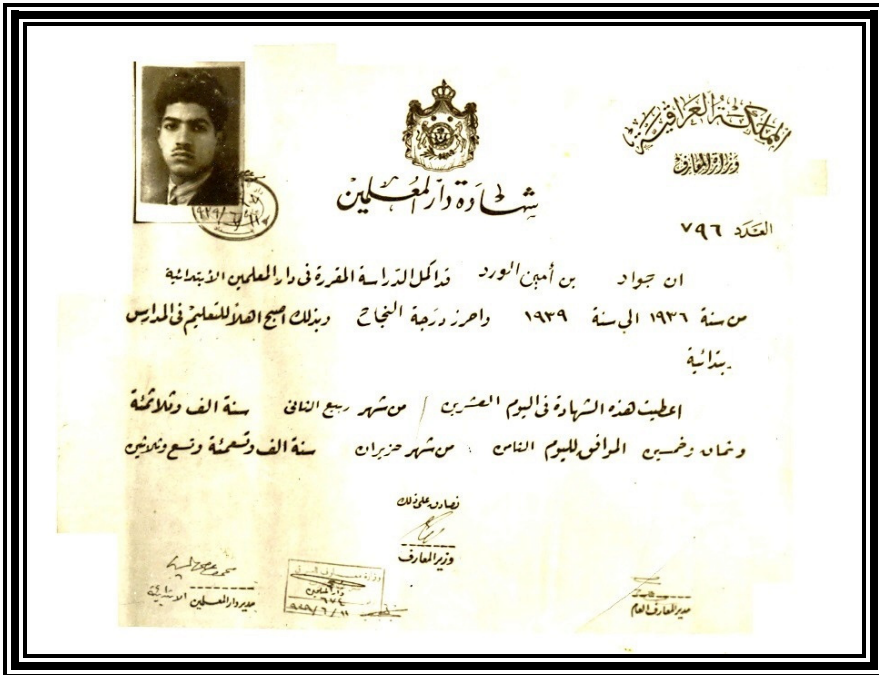 المملكة العراقية
وزارة المعارف
شهادة دار المعلمين
العدد ٧٩٦
ان جواد بن أمين الورد قد اكمل الدراسة المقررة في دار المعلمين الابتدائية
من سنة ١٩٣٦ الى سنة ١٩٣٩ واحرز درجة النجاح وبذلك اصبح اهلاً للتعليم في المدارس
بتدائية
اعطيت هذه الشهادة في اليوم العشرين من شهر ربيع الثاني سنة الف وثلاثمئة
وثمان وخمسين الموافق لليوم الثامن من شهر حزيران سنة الف وتسعمئة وتسع وثلاثين
نصادق على ذلك
وزير المعارف
مدير المعارف العام
مدير دار المعلمين الابتدائية
دار المعلمين